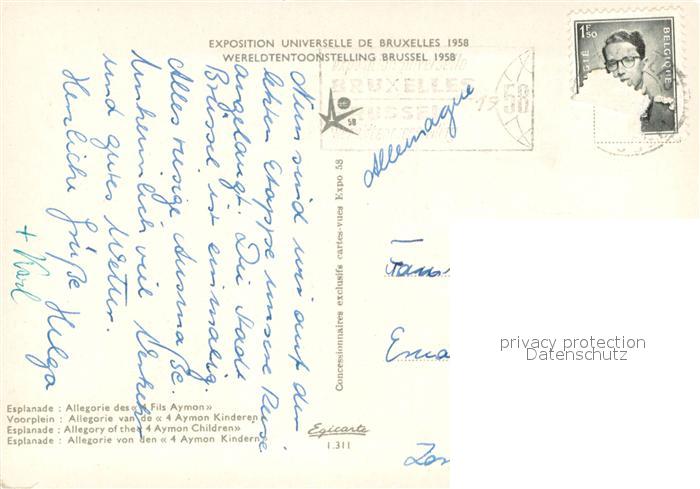 EXPOSITION UNIVERSELLE DE BRUXELLES 1958
WERELDTENTOONSTELLING BRUSSEL 1958
BRUXELLES
1958
1F50
BELGIQUE
BELGIË
58
Nun sind wir auf der
letzten Etappe unserer Reise
angelangt. Die Stadt
Brüssel ist einmalig.
Alles riesige Ausmaße.
Unheimlich viel Verkehr
und gutes Wetter.
Herzliche Grüße Helga
+ Karl
Allemagne
Concessionnaires exclusifs cartes-vues Expo 58
Esplanade : Allegorie des « 4 Fils Aymon »
Voorplein : Allegorie van de « 4 Aymon Kinderen
Esplanade : Allegory of the « 4 Aymon Children »
Esplanade : Allegorie von den « 4 Aymon Kindern
Egicarte
1.311
privacy protection
Datenschutz